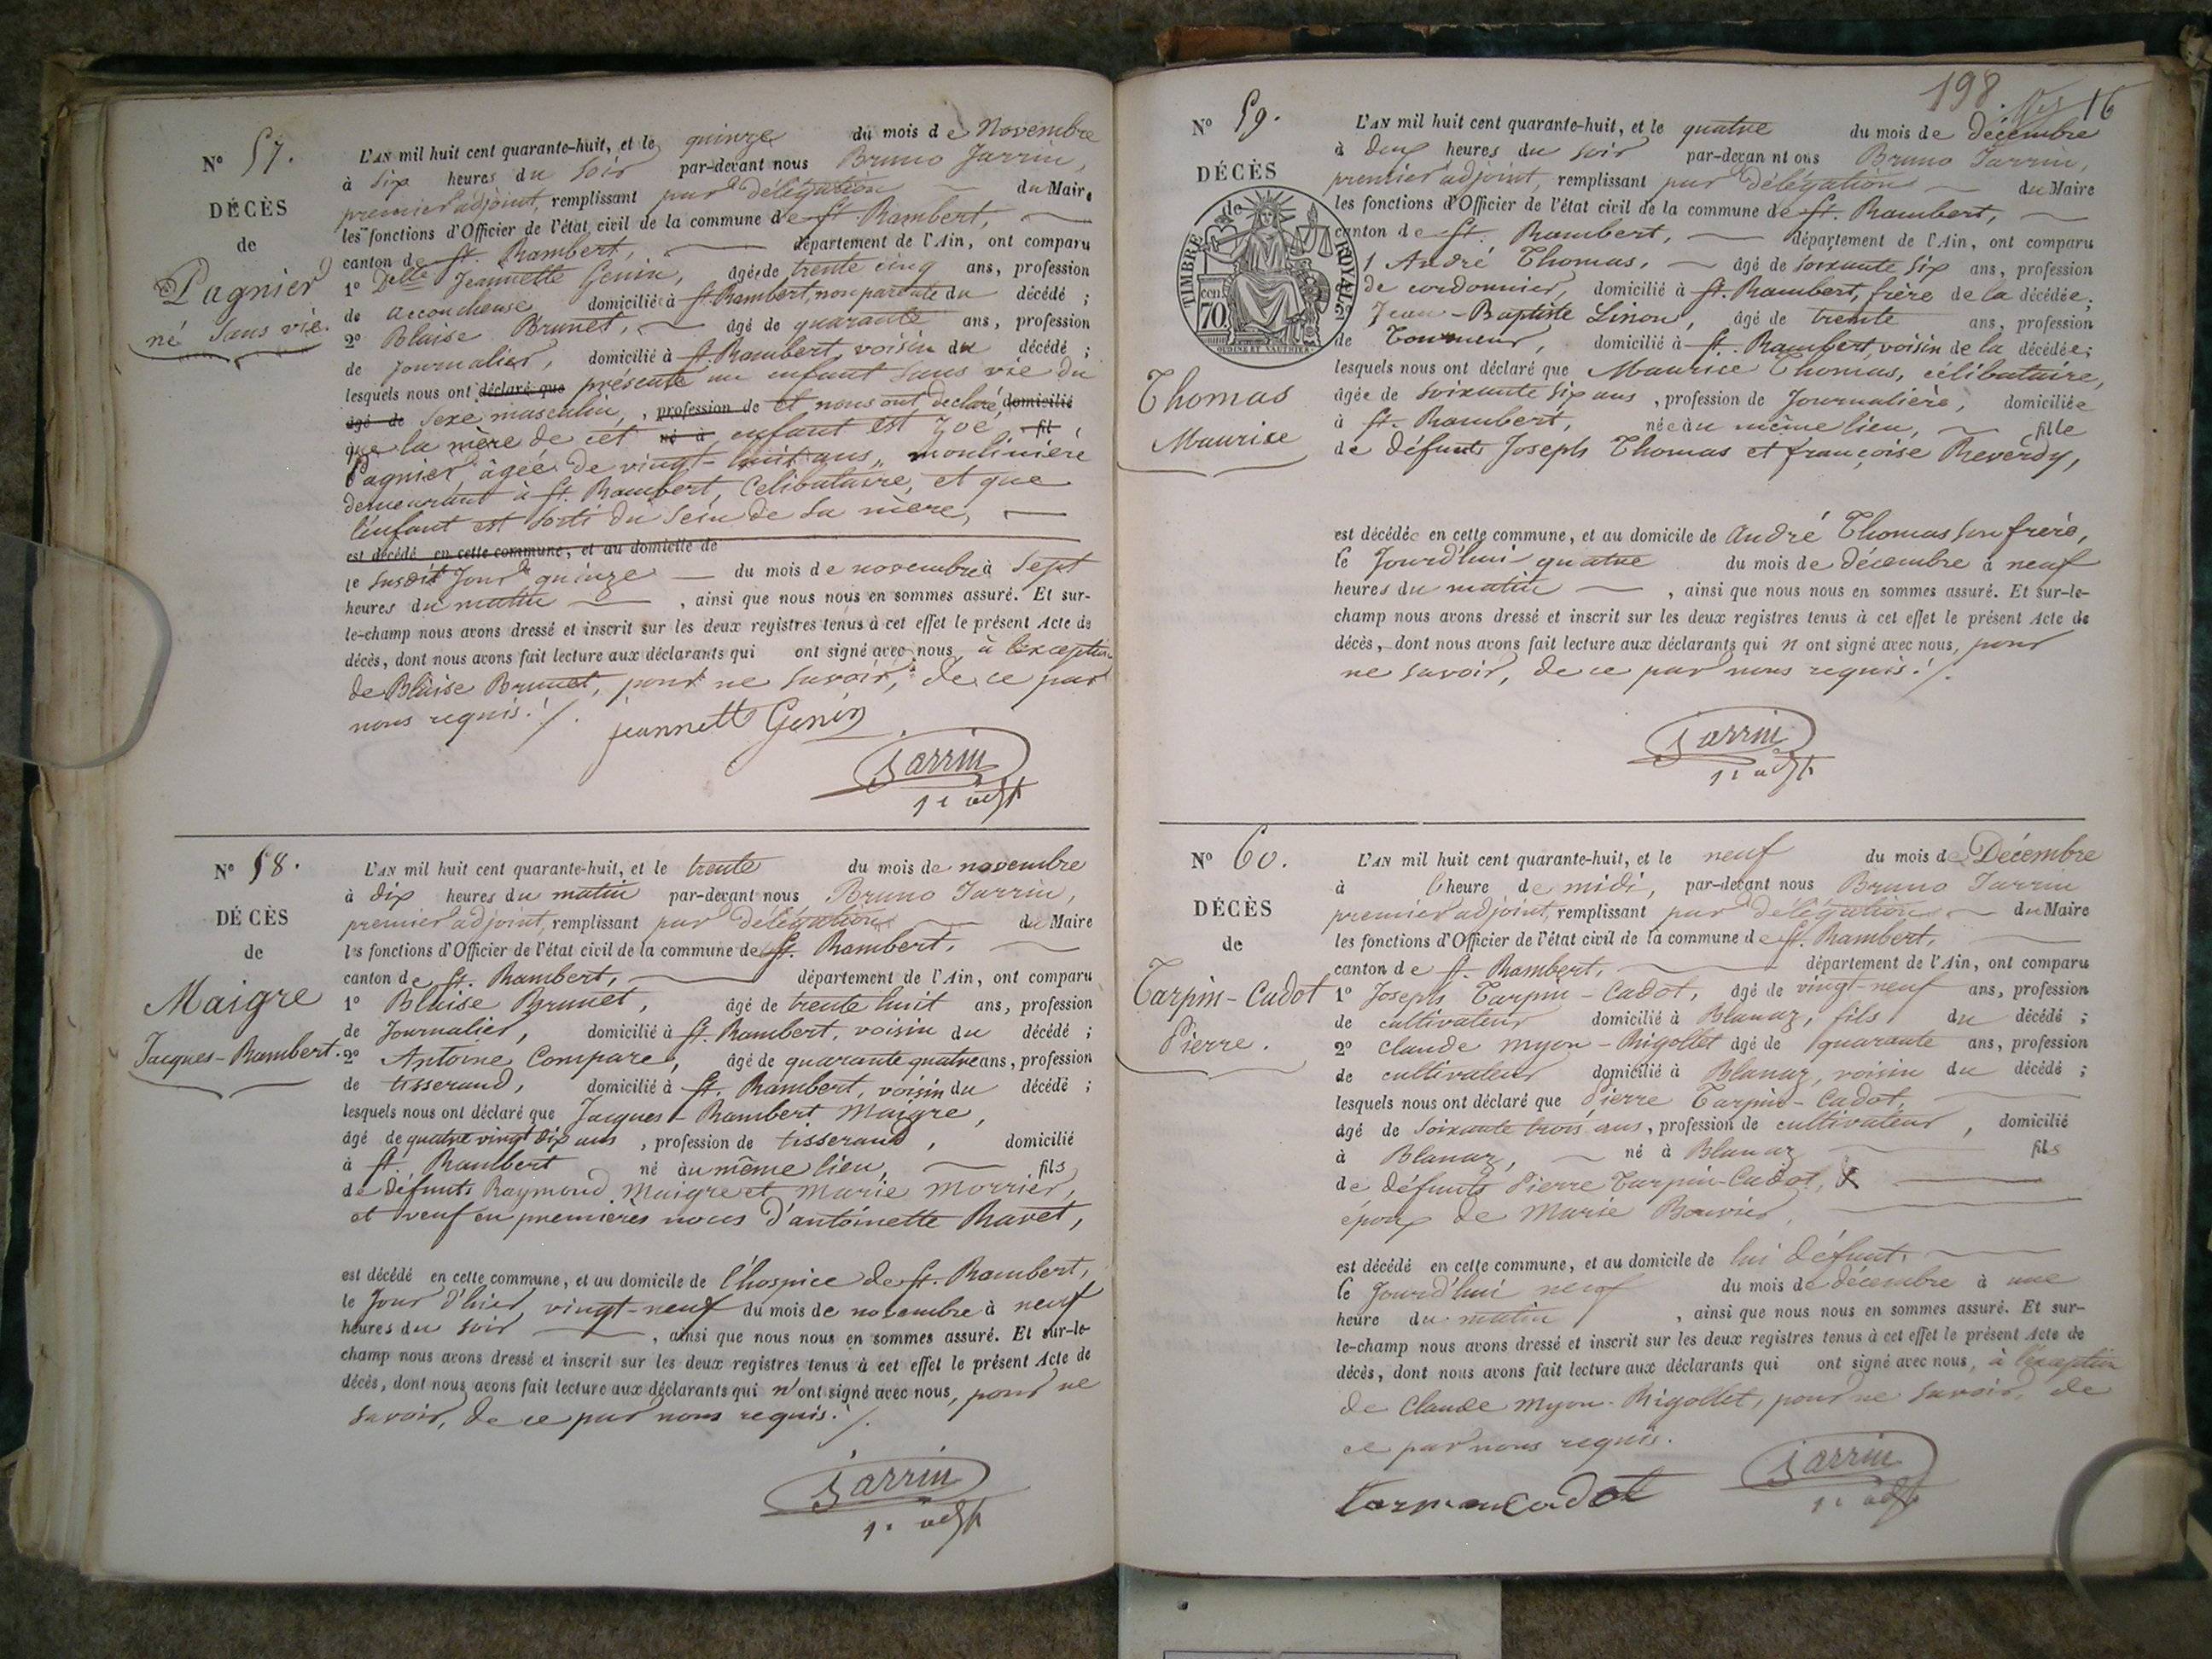 N° 57.
DÉCÈS
de
Pagnier
né sans vie.
L'AN mil huit cent quarante-huit, et le quinze du mois de Novembre
à six heures du soir par-devant nous Bruno Jarrin,
premier adjoint, remplissant par délégation du Maire
les fonctions d'Officier de l'état civil de la commune de St. Rambert,
canton de St. Rambert, département de l'Ain, ont comparu
1° Delle Jeannette Genin, âgée de trente cinq ans, profession
de accoucheuse domiciliée à St. Rambert, non parente du décédé ;
2° Blaise Brunet, âgé de quarante ans, profession
de journalier, domicilié à St. Rambert, voisin du décédé ;
lesquels nous ont déclaré que présenté un enfant sans vie du
âgé de sexe masculin, , profession de et nous ont declaré, domicilié
que la mère de cet né à enfant est Zoé fil
Pagnier, âgée de vingt-huit ans, moulinière
demeurant à St. Rambert, Celibataire, et que
l'enfant est sorti du sein de sa mère,
est décédé en cette commune, et au domicile de
le susdit jour quinze du mois de novembre à sept
heures du matin , ainsi que nous nous en sommes assuré. Et sur-
le-champ nous avons dressé et inscrit sur les deux registres tenus à cet effet le présent Acte de
décès, dont nous avons fait lecture aux déclarants qui ont signé avec nous, à l'exception
de Blaise Brunet, pour ne savoir, de ce par
nous requis. /.
jeannette Genin
Jarrin
1er adjt
N° 58.
DÉCÈS
de
Maigre
Jacques-Rambert.
L'AN mil huit cent quarante-huit, et le trente du mois de novembre
à dix heures du matin par-devant nous Bruno Jarrin,
premier adjoint, remplissant par délégation du Maire
les fonctions d'Officier de l'état civil de la commune de St. Rambert,
canton de St. Rambert, département de l'Ain, ont comparu
1° Blaise Brunet, âgé de trente huit ans, profession
de Journalier, domicilié à St. Rambert, voisin du décédé ;
2° Antoine Compare, âgé de quarante quatre ans, profession
de tisserand, domicilié à St. Rambert, voisin du décédé ;
lesquels nous ont déclaré que Jacques-Rambert Maigre,
âgé de quatre vingt dix ans , profession de tisserand , domicilié
à St. Rambert né au même lieu, fils
de défunts Raymond Maigre et Marie Morrier,
et veuf en premières noces d'antoinette Ravet,
est décédé en cette commune, et au domicile de l'hospice de St. Rambert,
le Jour d'hier, vingt-neuf du mois de novembre à neuf
heures du soir , ainsi que nous nous en sommes assuré. Et sur-le-
champ nous avons dressé et inscrit sur les deux registres tenus à cet effet le présent Acte de
décès, dont nous avons fait lecture aux déclarants qui n'ont signé avec nous, pour ne
savoir, de ce par nous requis. /.
Jarrin
1er adjt
198.
16
N° 59.
DÉCÈS
de
TIMBRE ROYAL
70
cen
Thomas
Maurice
L'AN mil huit cent quarante-huit, et le quatre du mois de décembre
à deux heures du soir par-devan nt ous Bruno Jarrin,
premier adjoint, remplissant par délégation du Maire
les fonctions d'Officier de l'état civil de la commune de St. Rambert,
canton de St. Rambert, département de l'Ain, ont comparu
1 André Thomas, âgé de soixante six ans, profession
de cordonnier, domicilié à St. Rambert, frère de la décédée ;
2° Jean-Baptiste Linon, âgé de trente ans, profession
de Tourneur, domicilié à St. Rambert, voisin de la décédée ;
lesquels nous ont déclaré que Maurice Thomas, célibataire,
âgée de soixante six ans , profession de Journalière, domiciliée
à St. Rambert, née au même lieu, fille
de défunts Joseph Thomas et françoise Reverdy,
est décédée en cette commune, et au domicile de André Thomas son frère,
le Jourd'hui quatre du mois de décembre à neuf
heures du matin , ainsi que nous nous en sommes assuré. Et sur-le-
champ nous avons dressé et inscrit sur les deux registres tenus à cet effet le présent Acte de
décès, dont nous avons fait lecture aux déclarants qui n ont signé avec nous, pour
ne savoir, de ce par nous requis. /.
Jarrin
1er adjt
N° 60.
DÉCÈS
de
Tarpin-Cadot
Pierre.
L'AN mil huit cent quarante-huit, et le neuf du mois de Décembre
à l'heure de midi, par-devant nous Bruno Jarrin
premier adjoint, remplissant par délégation du Maire
les fonctions d'Officier de l'état civil de la commune de St. Rambert,
canton de St. Rambert, département de l'Ain, ont comparu
1° Joseph Tarpin-Cadot, âgé de vingt-neuf ans, profession
de cultivateur domicilié à Blanaz, fils du décédé ;
2° Claude Myon-Rigollet âgé de quarante ans, profession
de cultivateur domicilié à Blanaz, voisin du décédé ;
lesquels nous ont déclaré que Pierre Tarpin-Cadot,
âgé de soixante trois ans, profession de cultivateur , domicilié
à Blanaz, né à Blanaz fils
de défunts Pierre Tarpin-Cadot,
époux de Marie Bouvier,
est décédé en cette commune, et au domicile de lui défunt,
le Jourd'hui neuf du mois de décembre à une
heure du matin , ainsi que nous nous en sommes assuré. Et sur-
le-champ nous avons dressé et inscrit sur les deux registres tenus à cet effet le présent Acte de
décès, dont nous avons fait lecture aux déclarants qui ont signé avec nous, à l'exception
de Claude Myon-Rigollet, pour ne savoir, de
ce par nous requis.
Jarrin
1er adjt